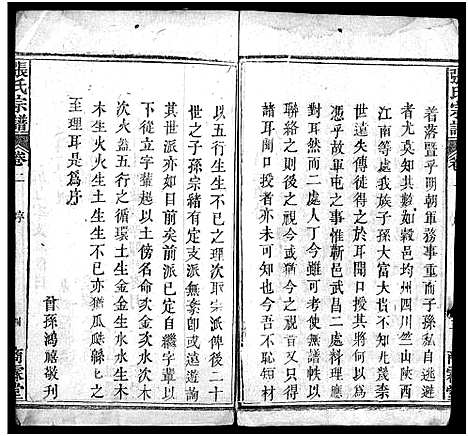 著落暨乎明朝軍務事重而子孫私自逃避
者尤莫知共知如穀邑均州四川竺山陝西
江南等處我族子孫大富大貴不知凡幾柰
失售失傳徒得之於耳聞口授者將何所考
憑乎故軍屯之事惟蘄邑武昌二處料理應
對無異然而二處人丁今雖可考使今日不
聯絡將來則後之視今或猶今之視昔矣
耳聞口授者亦或未可知也今為此懼不
是恥於短材
以五行生生不已以取宗派俾後二十
世之子孫宗緒有定支派無紊即或遠遊詢
其世派亦如目前矣前派已定自繼字輩以
次立字輩起以土傍名命次金次水次木
次火蓋五行之循環土生金金生水水生木
木生火火生土生生不已亦猶瓜瓞緜緜之
至理耳是為序
曾孫鴻臚敬刊
張氏宗譜
卷一
序
四
張氏宗譜
卷一